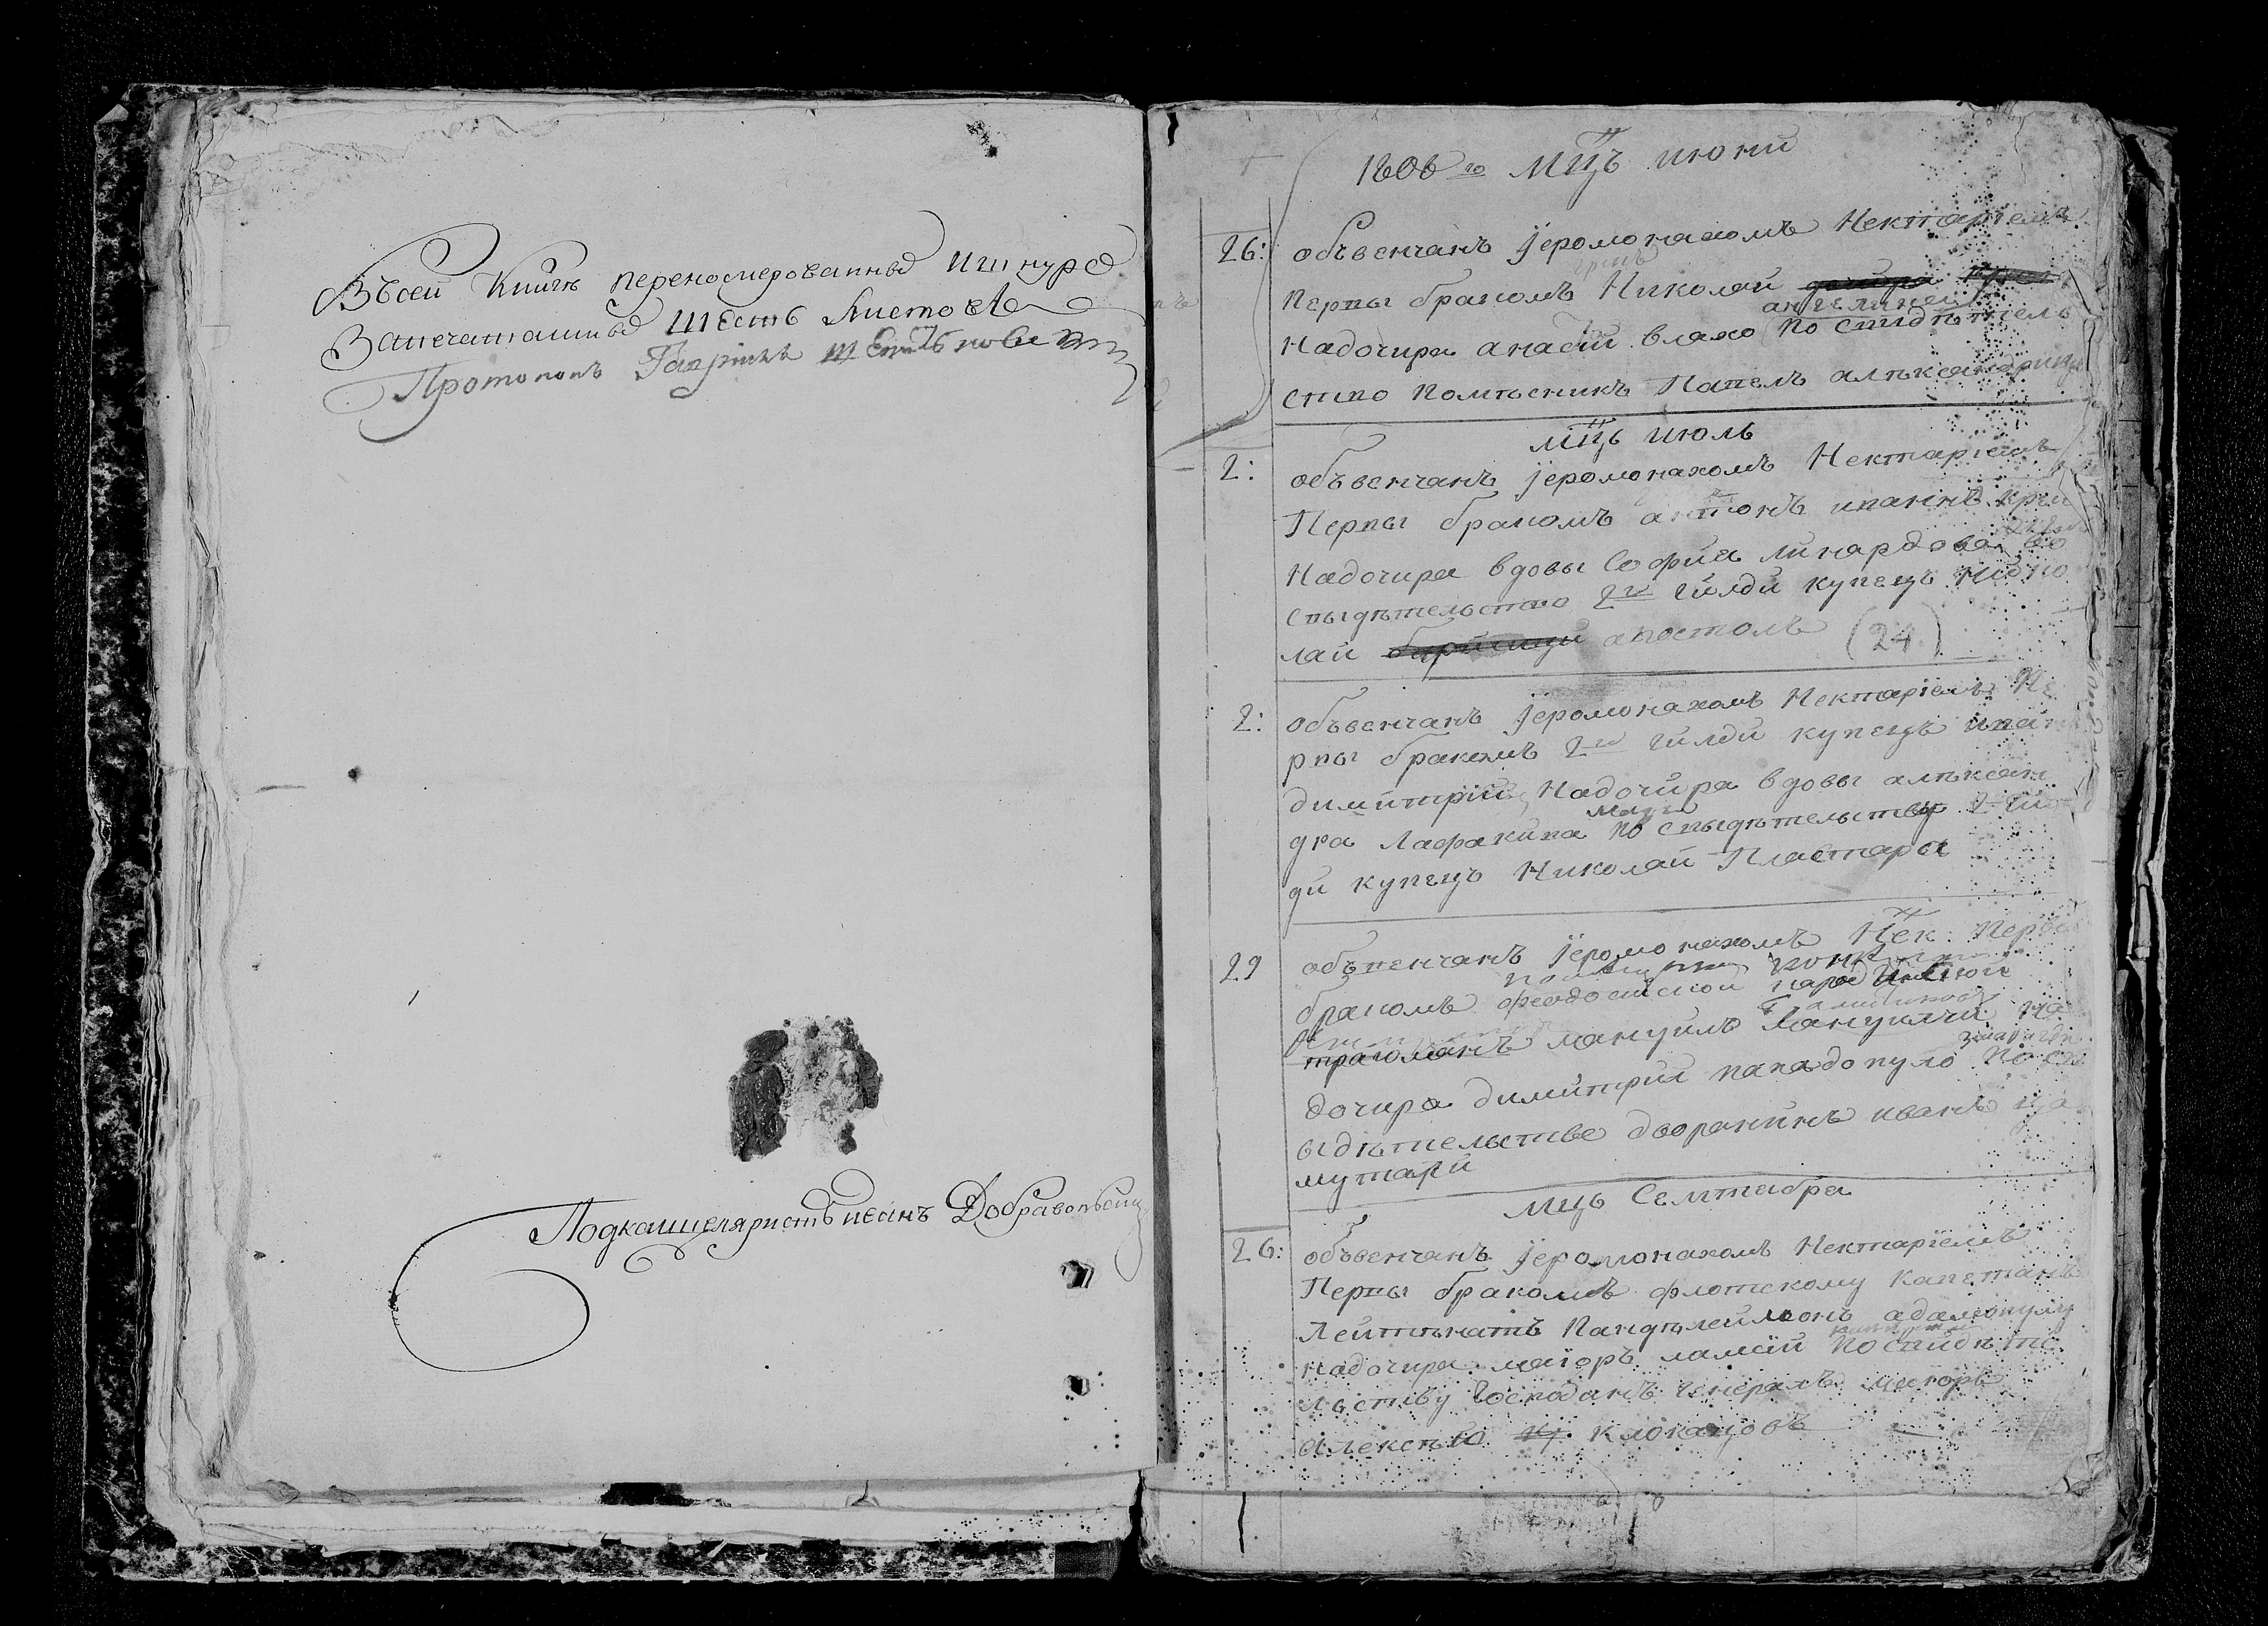 Въсей Книгѣ переномерованныѣ ишнурѣ
Запечатанныѣ шесть листовъ
Протопопъ
Подканцеляристъ иванъ Добравольски
1806 го мцъ июни
26: объвенчанъ їеромонахомъ Нектарїемъ
Первы бракомъ Николай
ангелиной
Надочира анасти влахо по свидѣтель
ство помѣсникъ Павелъ алѣксандри
мцъ июль
2: объвенчанъ їеромонахомъ Нектарїемъ
Первы бракомъ антонъ иваннъ
Надочира вдовы Софиа линардова по
свыдѣтельство 2й гилди купецъ Нико
лай апостолъ (24)
2: объвенчанъ їеромонахомъ Нектарїемъ Пе
рвы бракомъ 2й гилди купецъ иван
димитрий Надочира вдовы алѣксан
дра Лафакива по свыдѣтельству 2й гил
ди купецъ Николай Пластара
29 объвенчанъ їеромонахомъ Нек. Первы
бракомъ феодосиской
трагоманъ мануилъ на
дочира димитрил пападопуло по св
ыдѣтельстве дворанинъ иванъ
мутафи
мцъ Семтабра
26: объвенчанъ їеромонахомъ Нектарїемъ
Первы бракомъ флотскому капетанъ
Лейтѣнатъ Пандѣлеймонъ адамопулу
надочира маїоръ ламбй по свидѣте
льству Господанъ генералъ маїоръ
алексѣю клокачовъ